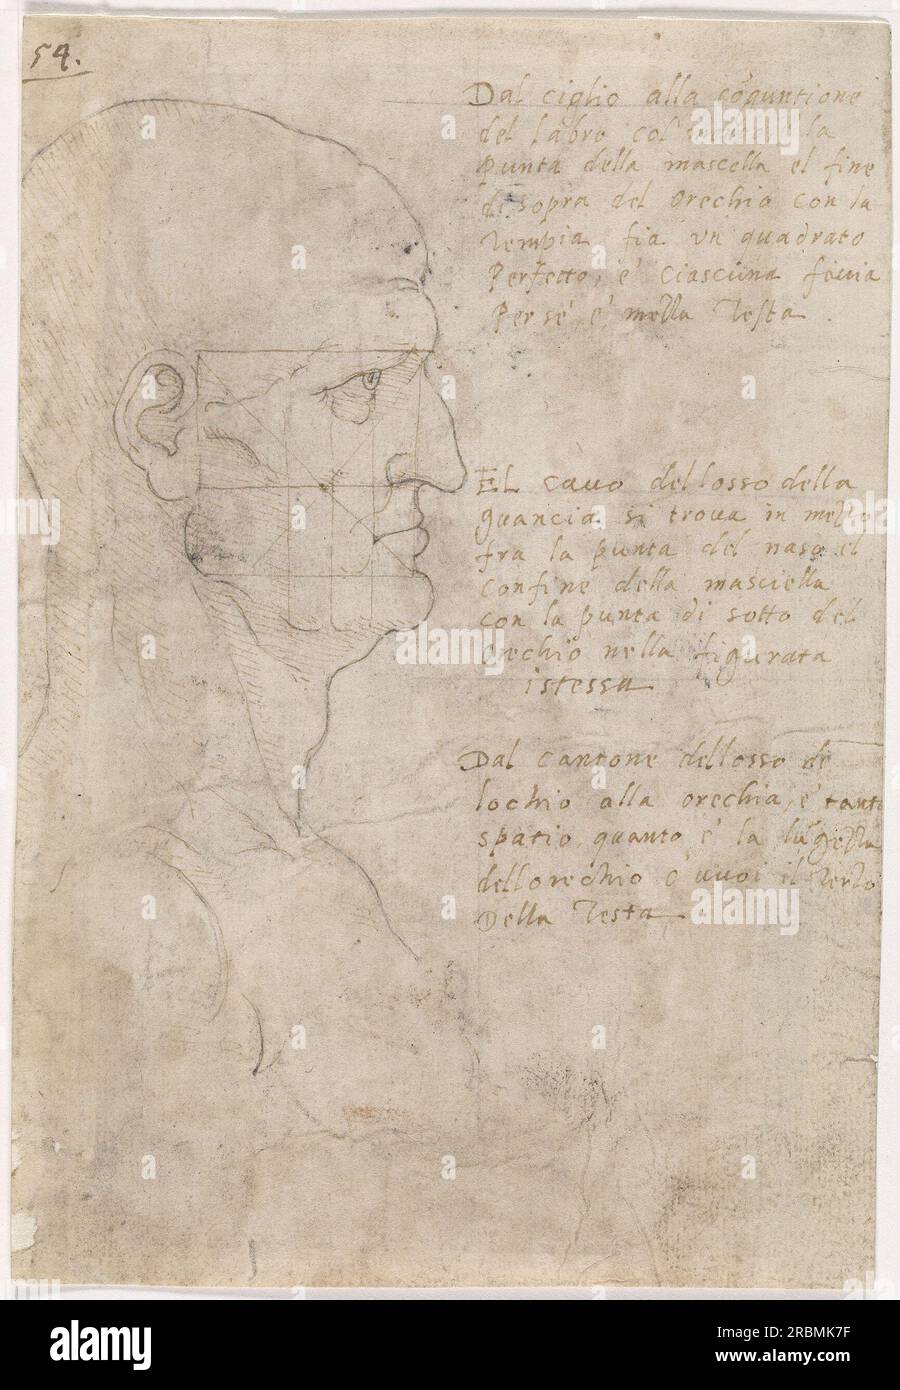 54.
Dal ciglio alla coguntione
del labro col la
punta della mascella el fine
di sopra del orechio con la
tempia fia un quadrato
Perfetto, e' ciascuna
Per se, e' mezza Testa
El cavo dellosso della
guancia si trova in mezzo
fra la punta del naso el
confine della masciella
con la punta di sotto del
Orechio nella figurata
istessa
Dal cantone dellosso de
lochio alla orechia, e' tanto
spatio, quanto e' la
dellorechio o' vuoi il terzo
Della Testa
alamy
Image ID: 2RBMK7F
www.alamy.com